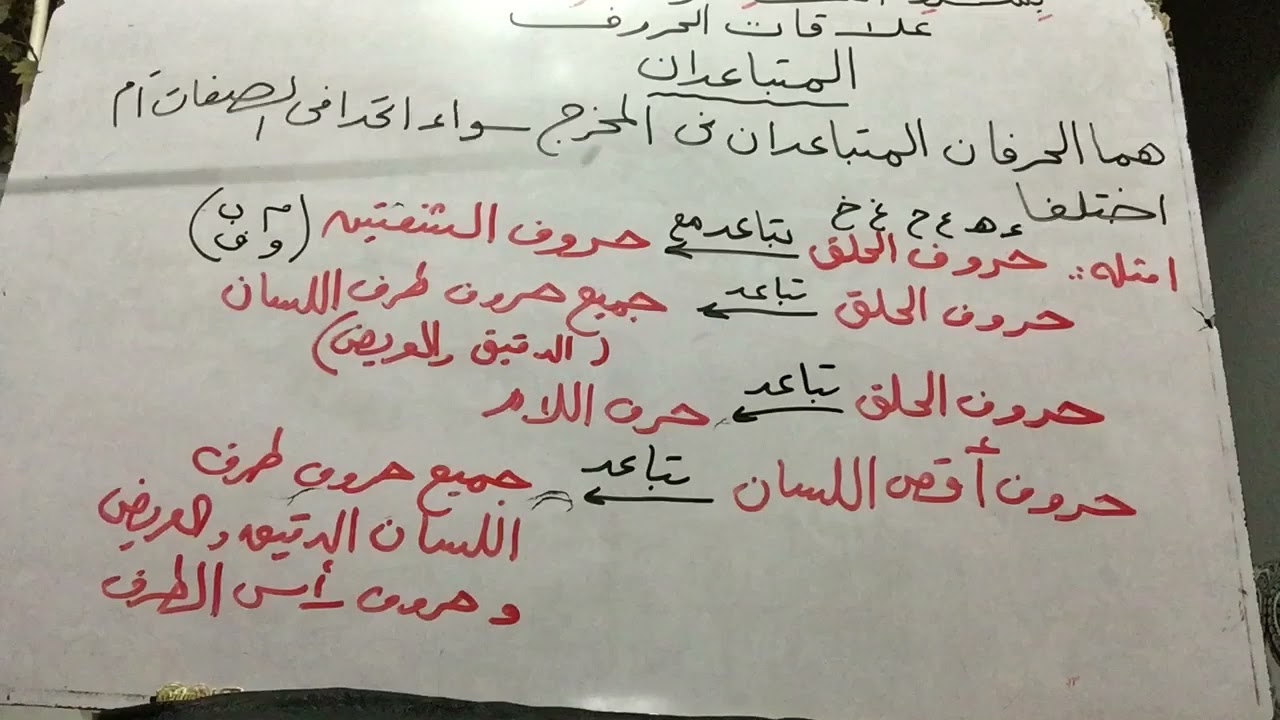 علاقات الحروف
المتباعدان
هما الحرفان المتباعدان فى المخرج سواء اتحدا فى الصفات أم
اختلفا
ء ه ع ح غ خ
امثله :. حروف الحلق تباعد مع حروف الشفتيه (م ب و ف)
حروف الحلق تباعد جميع حروف طرف اللسان
(الدقيق والعريض)
حروف الحلق تباعد حرف اللام
حروف أقصى اللسان تباعد جميع حروف طرف
اللسان الدقيق والعريض
وحروف رأس الطرف